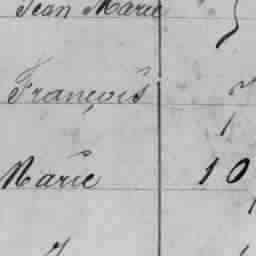 Jean Marie
François
Marie 10